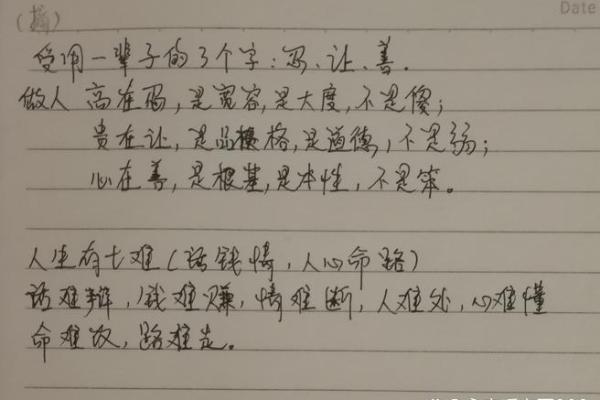 (摘)
Date
受用一辈子的3个字:忍、让、善.
做人 高在忍,是宽容,是大度,不是傻;
贵在让,是品格,是道德,不是弱;
心在善,是根基,是本性,不是笨。
人生有七难(话钱情,人心命路)
话难辩,钱难赚,情难断,人难处,心难懂
命难改,路难走。